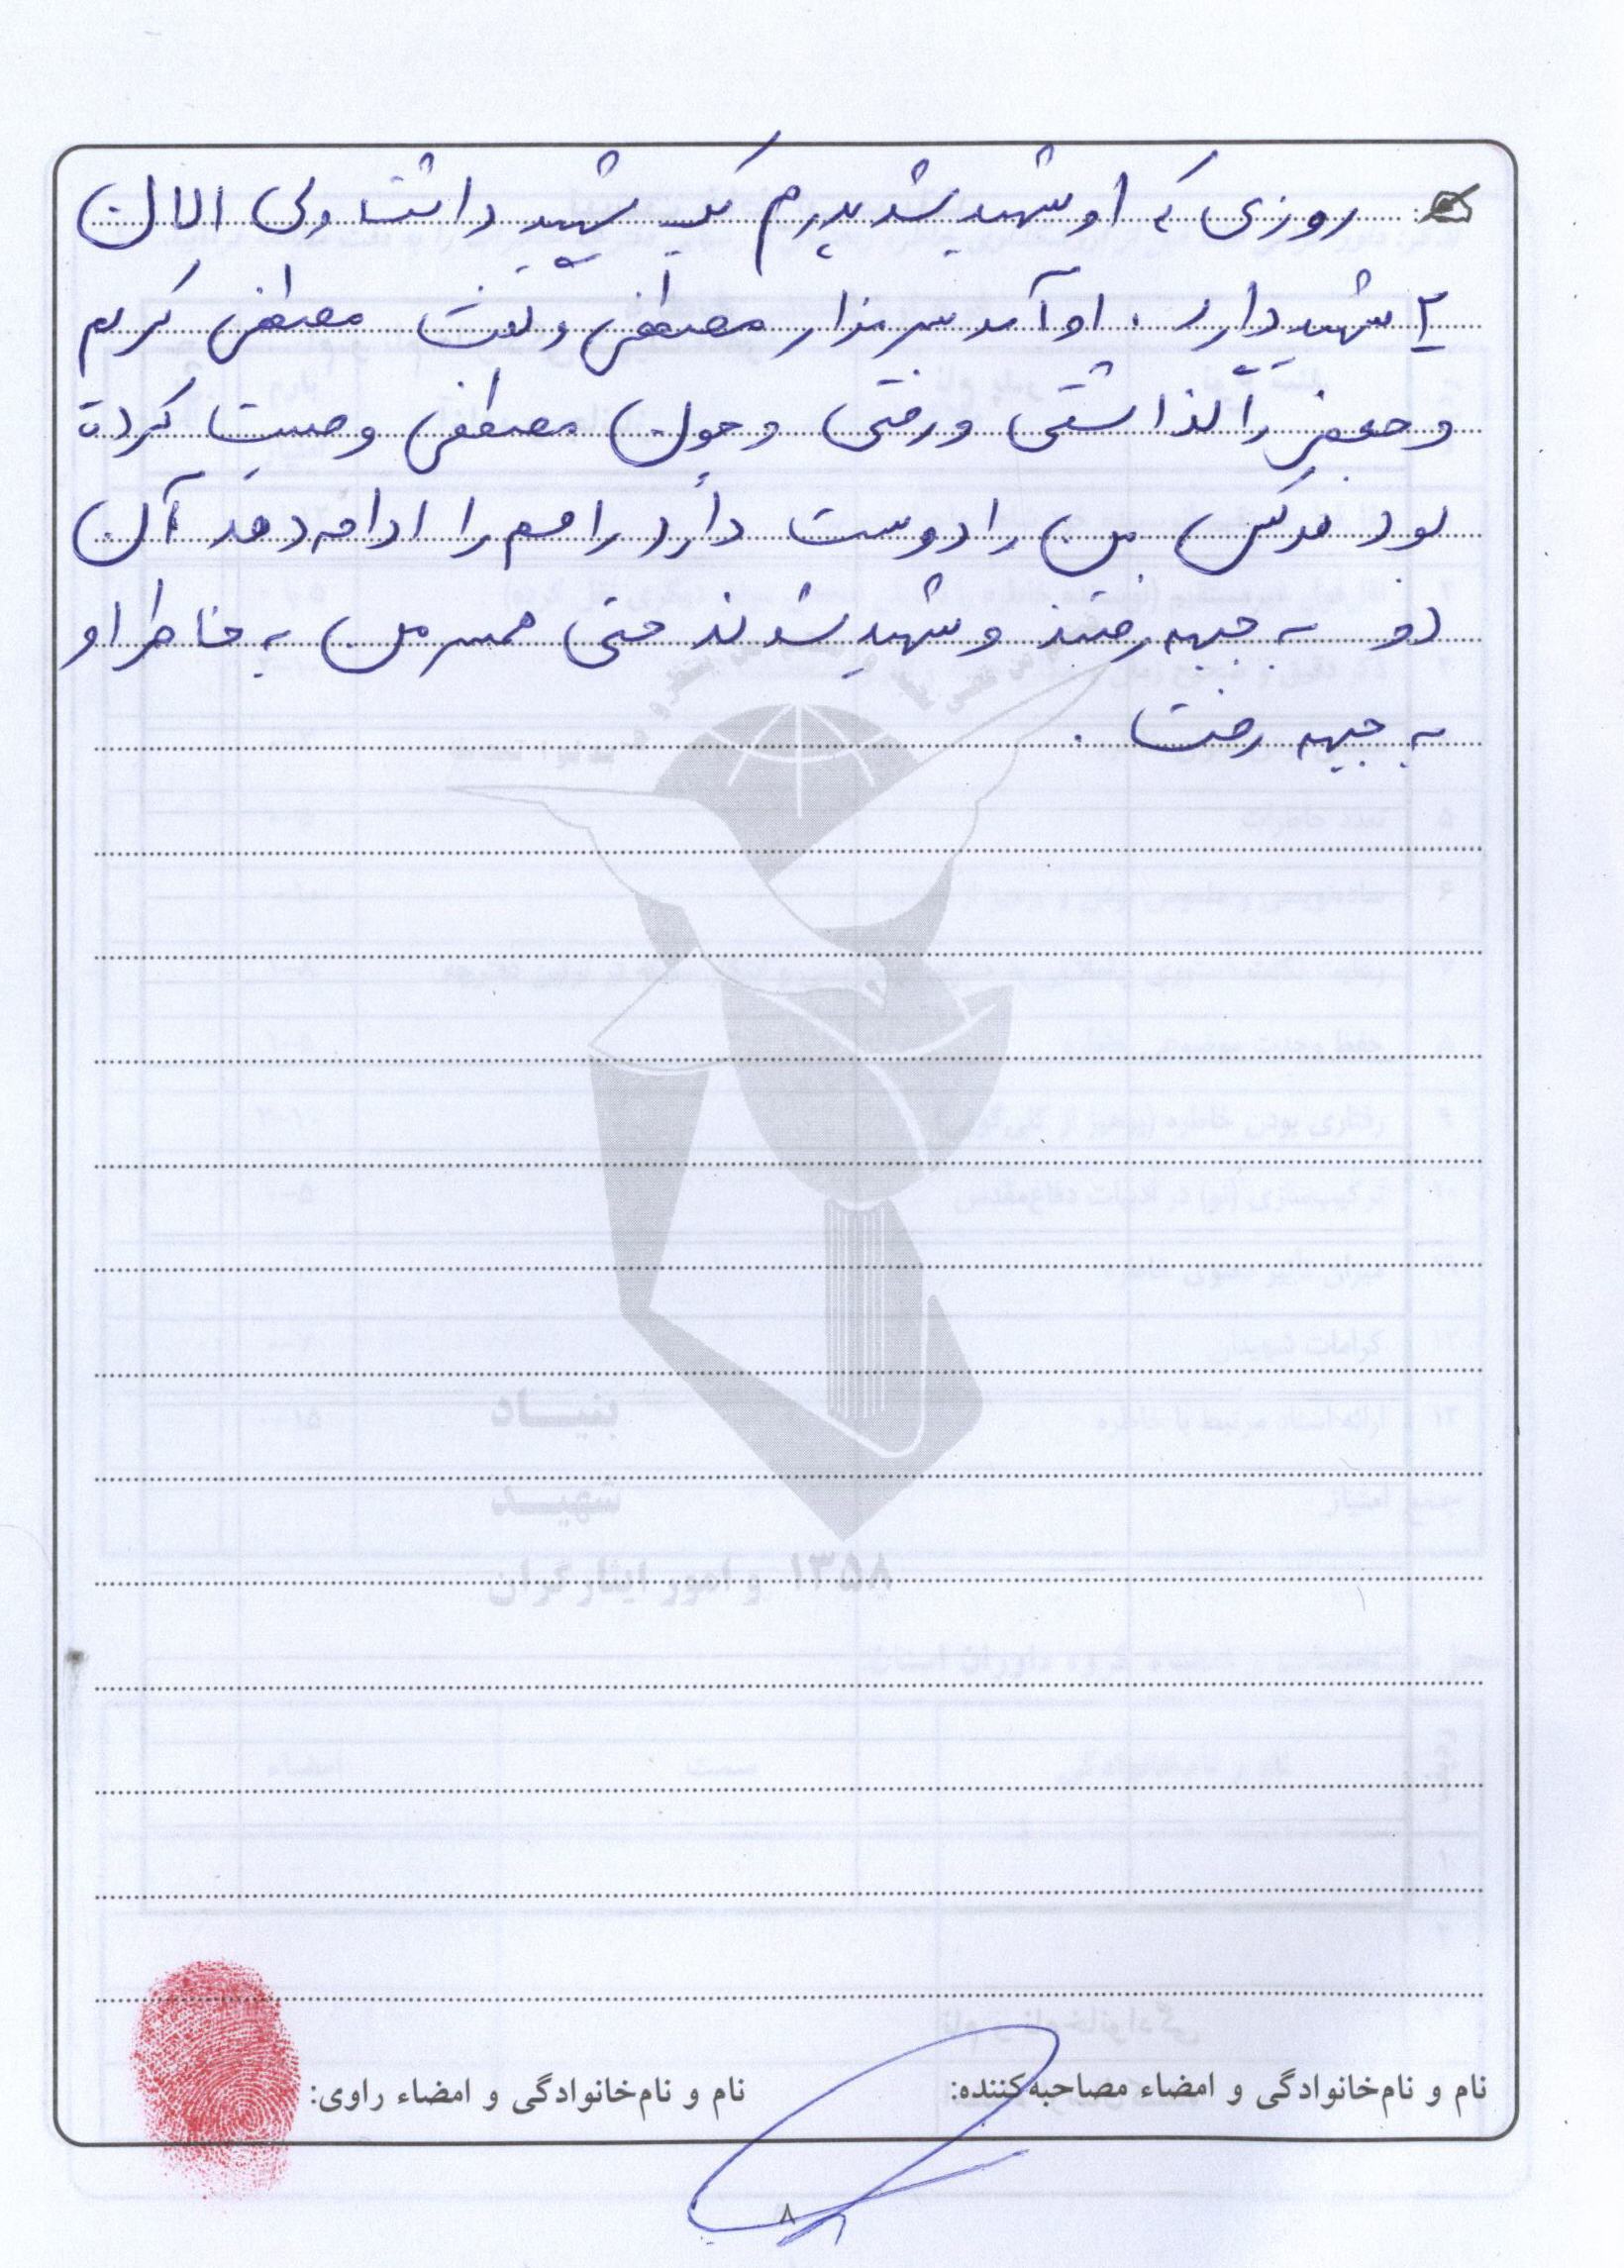 روزی که او شهید شد پدرم یک شهید داشت ولی الان
۲ شهید دارد . او آمد سر مزار مصطفی و گفت مصطفی کریم
و جعفر را گذاشتی و رفتی و چون مصطفی وصیت کرده
بود هرکس من را دوست دارد راهم را ادامه دهد آن
دو به جبهه رفتند و شهید شدند حتی همسر من به خاطر او
به جبهه رفت .
بنیاد
شهید
۱۳۵۸ و امور ایثارگران
نام و نام‌خانوادگی و امضاء مصاحبه‌کننده:
نام و نام‌خانوادگی و امضاء راوی:
۸